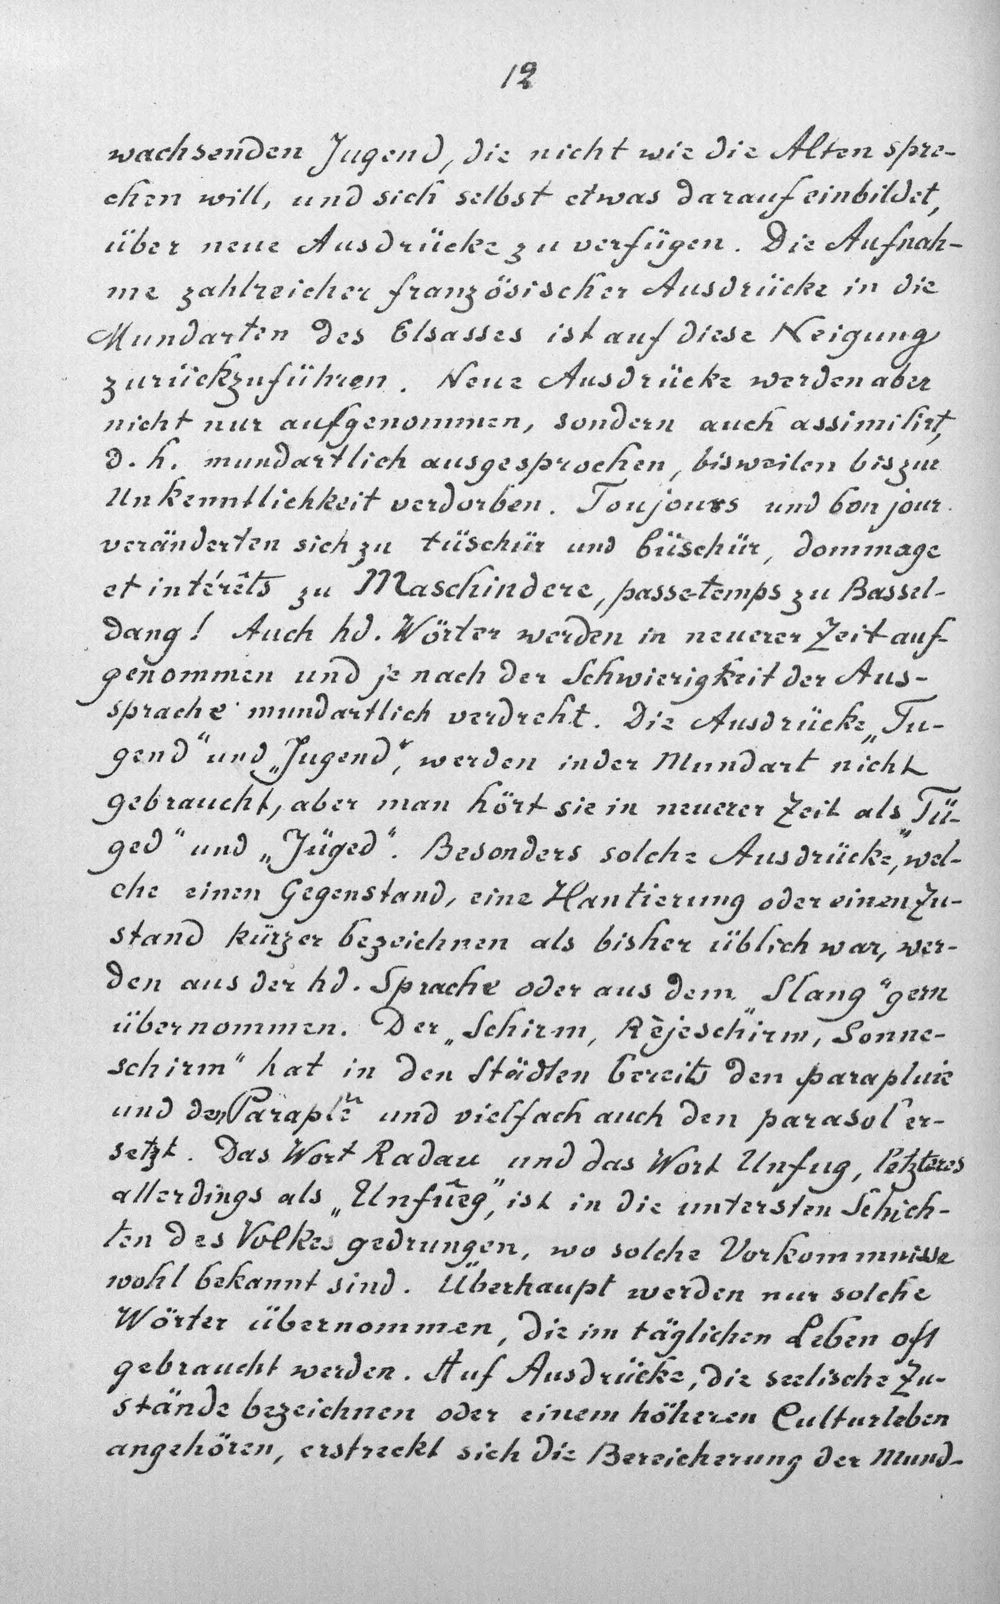 12
wachsenden Jugend, die nicht wie die Alten spre-
chen will, und sich selbst etwas darauf einbildet,
über neue Ausdrücke zu verfügen. Die Aufnah-
me zahlreicher französischer Ausdrücke in die
Mundarten des Elsasses ist auf diese Neigung
zurückzuführen. Neue Ausdrücke werden aber
nicht nur aufgenommen, sondern auch assimilirt,
d. h. mundartlich ausgesprochen, bisweilen bis zur
Unkenntlichkeit verdorben. Toujours und bonjour
veränderten sich zu tüschür und büschür, dommage
et intérêts zu Maschindere, passe-temps zu Bassel-
dang! Auch hd. Wörter werden in neuerer Zeit auf-
genommen und je nach der Schwierigkeit der Aus-
sprache mundartlich verdreht. Die Ausdrücke „Tu-
gend“ und „Jugend“, werden in der Mundart nicht
gebraucht, aber man hört sie in neuerer Zeit als „Tü-
ged“ und „Jüged“. Besonders solche Ausdrücke, wel-
che einen Gegenstand, eine Hantierung oder einen Zu-
stand kürzer bezeichnen als bisher üblich war, wer-
den aus der hd. Sprache oder aus dem „Slang“ gern
übernommen. Der „Schirm, Rèjeschirm, Sonne-
schirm“ hat in den Städten bereits den parapluie
und den Paraplü und vielfach auch den parasol er-
setzt. Das Wort Radau und das Wort Unfug, letzteres
allerdings als „Unfüeg“, ist in die untersten Schich-
ten des Volkes gedrungen, wo solche Vorkommnisse
wohl bekannt sind. Überhaupt werden nur solche
Wörter übernommen, die im täglichen Leben oft
gebraucht werden. Auf Ausdrücke, die seelische Zu-
stände bezeichnen oder einem höheren Culturleben
angehören, erstreckt sich die Bereicherung der Mund-